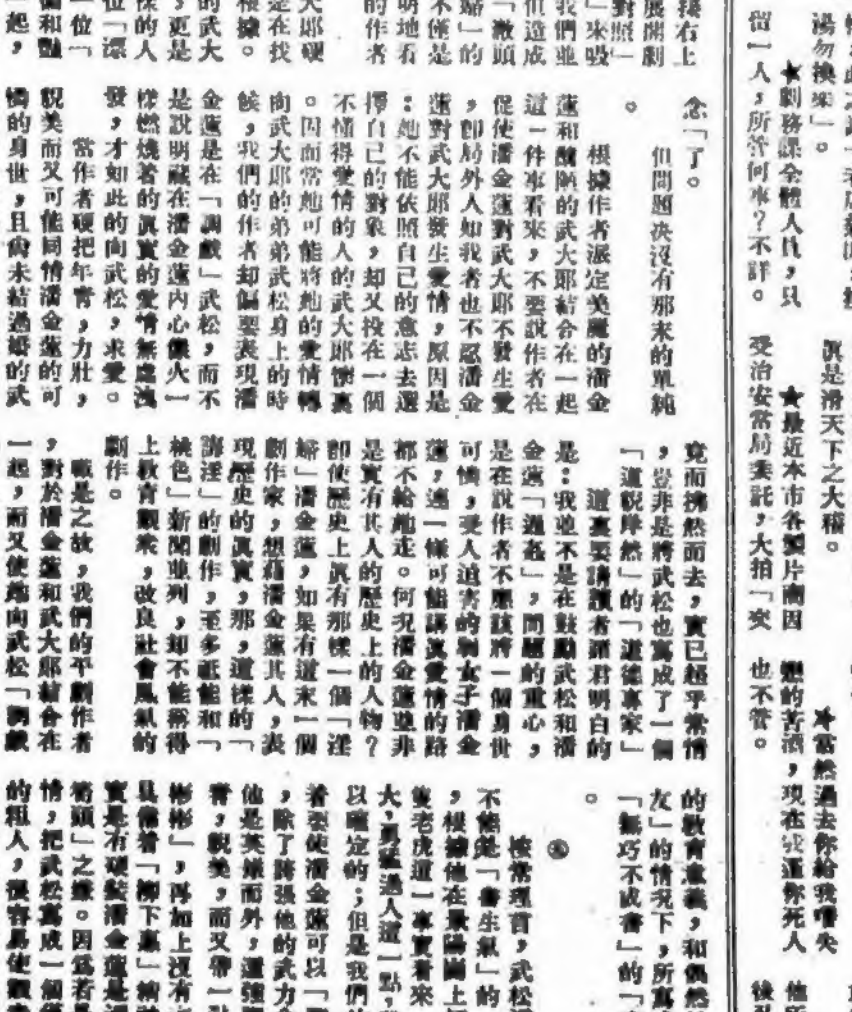 湯勿換來」。
★劇務課全體人員,只
留一人,所管何事?不詳。
眞是滑天下之大稽。
★最近本市各製片商因
受治安當局委託,大拍「突
★當然過去你給我嚐失
戀的苦酒,現在 還你死人
也不管。
接右上
展開劇
對照一
」來吸
我們並
但造成
「徹頭
婦」的
不僅是
明地看
的作者
大郎硬
是在找
根據。
的武大
,更是
樣的人
位「漂
一位「
和豔
一起,
念「了。
但問題決沒有那末的單純
。
根據作者派定美麗的潘金
蓮和醜陋的武大郎結合在一起
這一件事看來,不要說作者在
促使潘金蓮對武大郎不發生愛
,卽局外人如我者也不忍潘金
蓮對武大郎發生愛情,原因是
:她不能依照自己的意志去選
擇自已的對象,却又投在一個
不懂得愛情的人的武大郎懷裏
。因而當她可能將她的愛情轉
向武大郎的弟弟武松身上的時
候,我們的作者却偏要表現潘
金蓮是在「調戲」武松,而不
是說明藏在潘金蓮內心像火一
樣燃燒着的眞實的愛情無處洩
發,才如此的向武松,求愛。
當作者硬把年青,力壯,
貌美而又可能同情潘金蓮的可
憐的身世,且尙未結過婚的武
竟而拂然而去,實已超乎常情
,豈非是將武松也寫成了一個
「道貌岸然」的「道德專家」
。
這裏要請讀者諸君明白的
是:我並不是在鼓勵武松和潘
金蓮「通姦」,問題的重心,
是在說作者不應該將一個身世
可憐,受人迫害的弱女子潘金
蓮,連一條可能講眞愛情的路
都不給她走。何况潘金蓮並非
是實有其人的歷史上的人物?
卽使歷史上眞有那樣一個「淫
婦」潘金蓮,如果有這末一個
劇作家,想藉潘金蓮其人,表
現歷史的眞實,那,這樣的「
誨淫」的劇作,至多祇能和「
桃色」新聞並列,却不能稱得
上敎育觀衆,改良社會風氣的
劇作。
職是之故,我們的平劇作者
,對於潘金蓮和武大郎結合在
一起,而又使她向武松「調戲
的敎育意義,和偶然
友」的情况下,所寫
「無巧不成書」的「
。
按常理言,武松
不能是「書生氣」的
,根據他在景陽崗上
隻老虎這一事實看來
大,勇猛過人這一點,
以確定的;但是我們的
着要使潘金蓮可以「
,除了誇張他的武力
他是英雄而外,還強
靑,貌美,而又帶一
彬彬」,再加上沒有
具備着「柳下惠」精
實是有硬給潘金蓮
之嫌。因爲若
情,把武松寫成一個
的粗人,很容易使觀